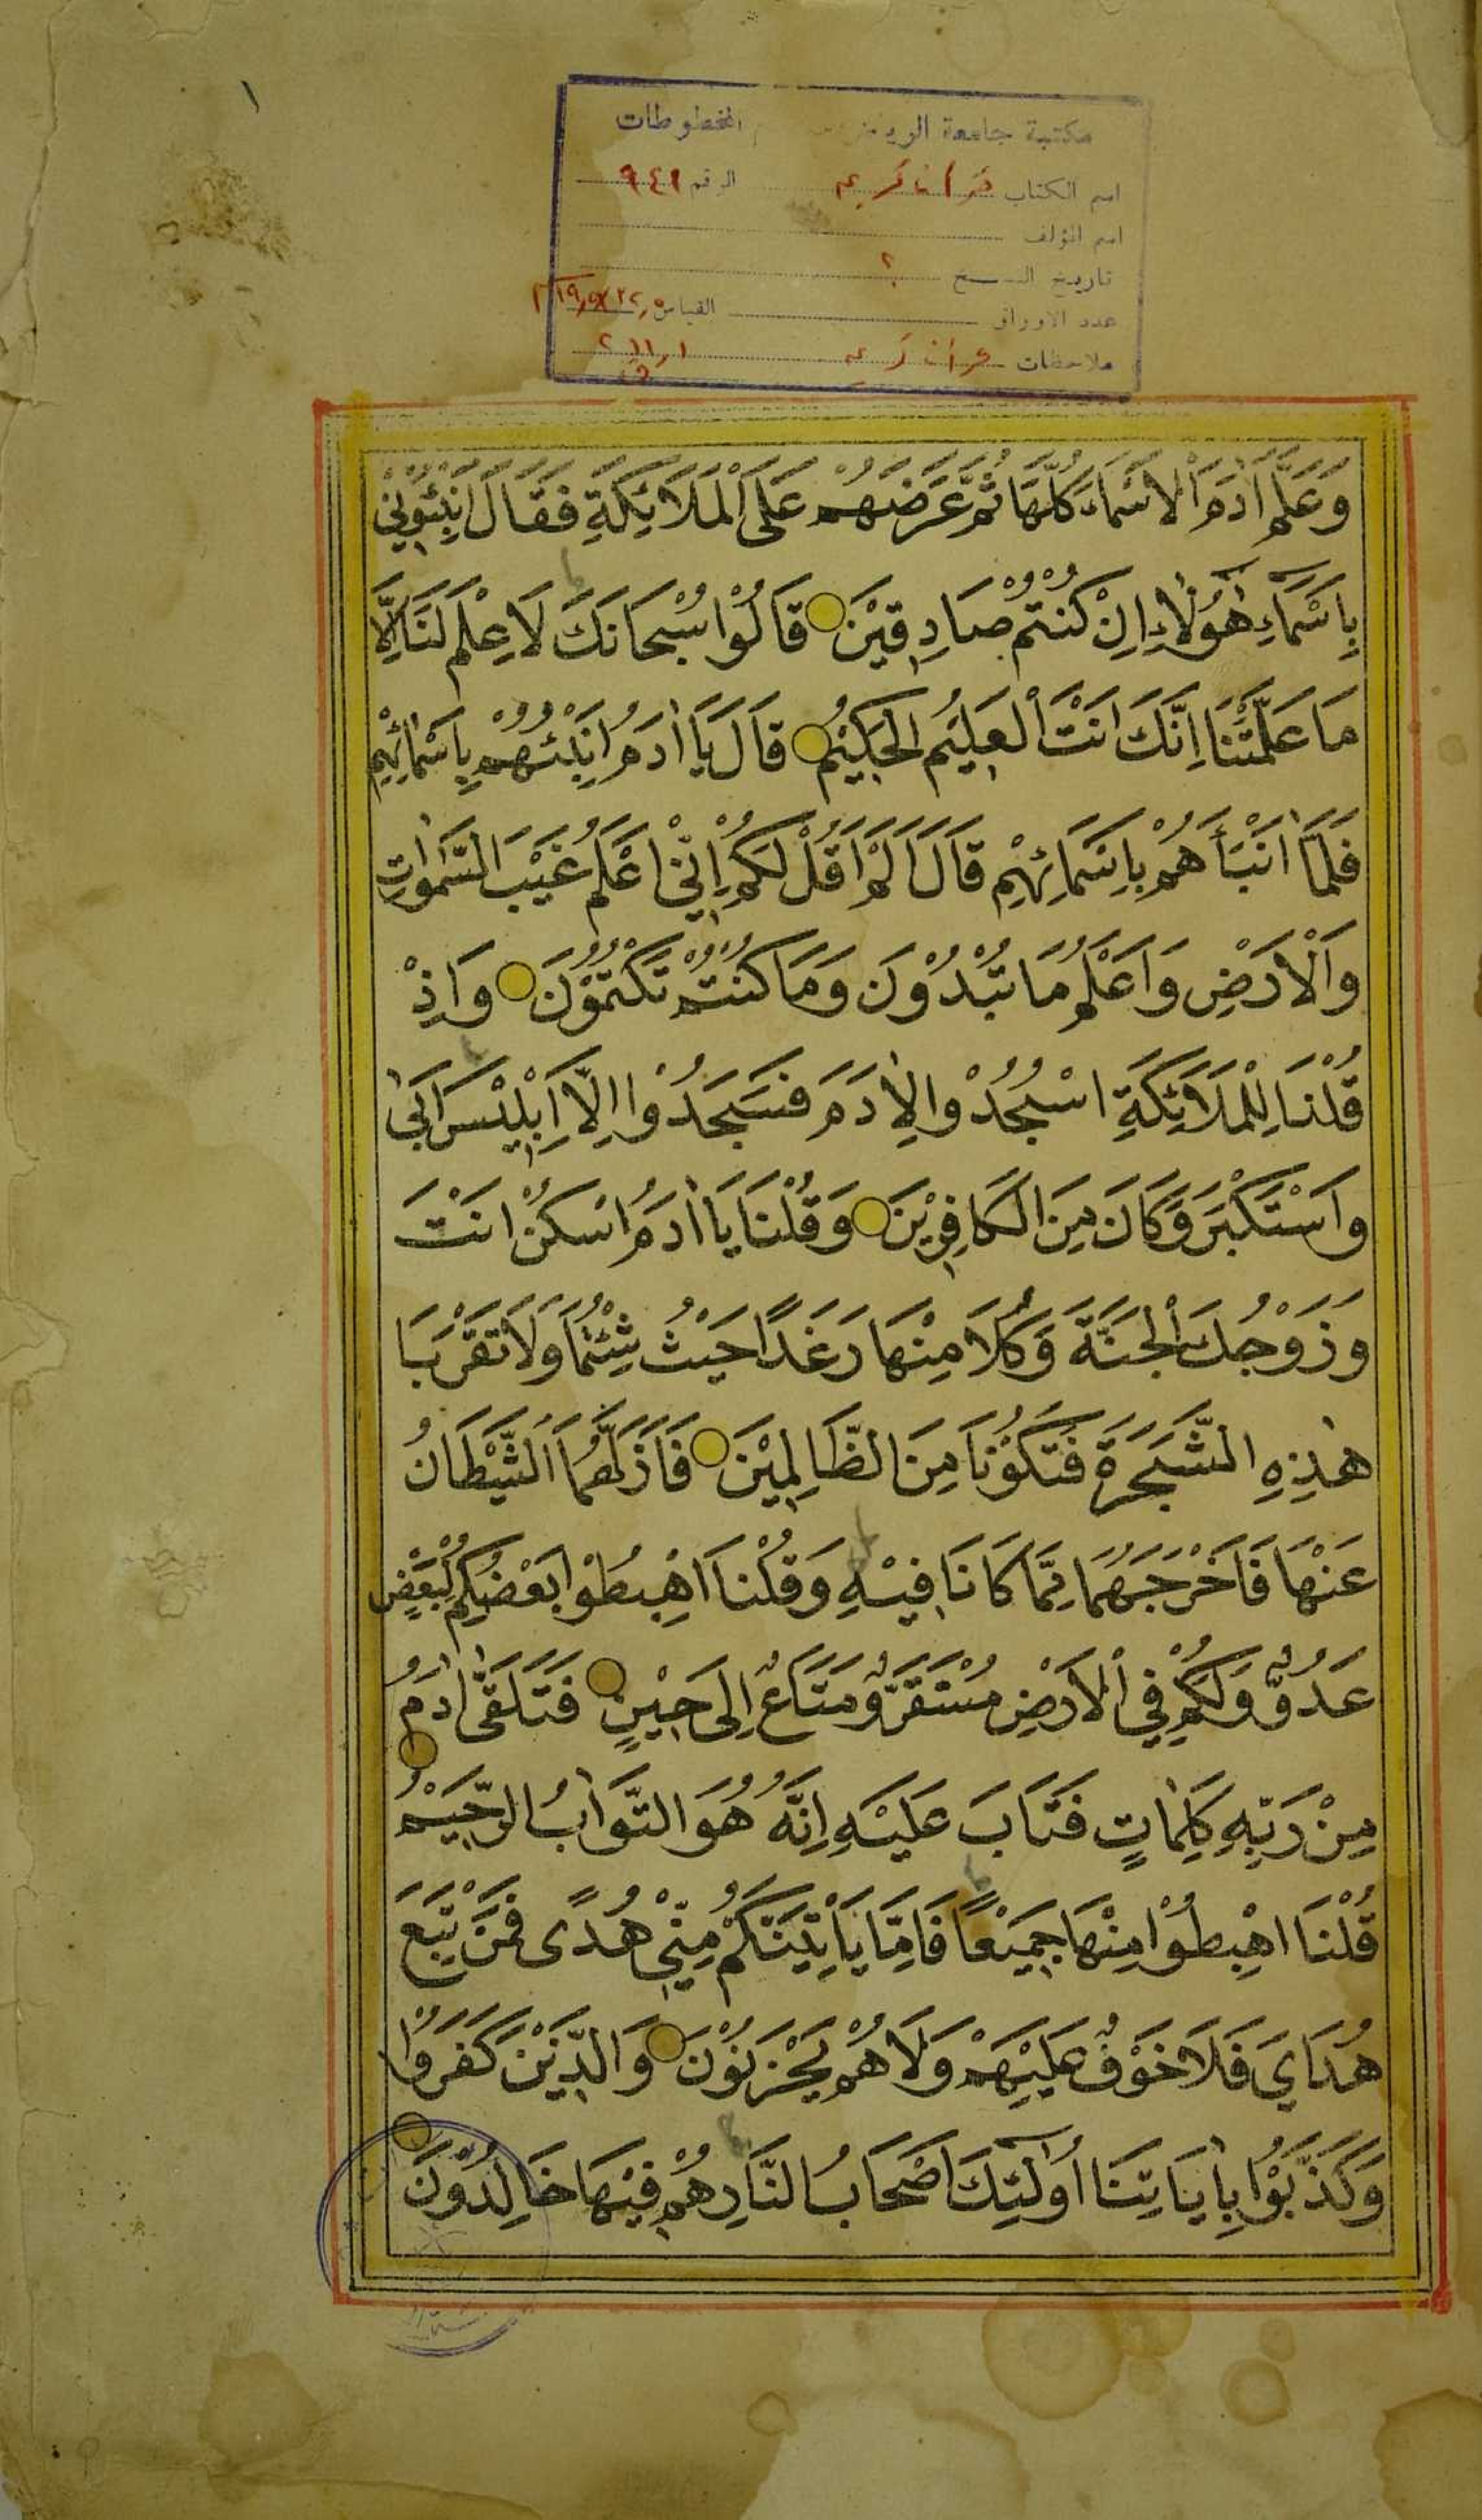 ١
مكتبة جامعة الرياض المخطوطات
اسم الكتاب قرآن كريم الرقم ٩٤١
اسم المؤلف
تاريخ النسخ ؟
عدد الاوراق القياس
ملاحظات
وَعَلَّمَ اٰدَمَ الْاَسْمَاءَ كُلَّهَا ثُمَّ عَرَضَهُمْ عَلَى الْمَلَائِكَةِ فَقَالَ اَنْبِئُوْنِيْ
بِاَسْمَاءِ هٰؤُلَاءِ اِنْ كُنْتُمْ صَادِقِيْنَ قَالُوْا سُبْحَانَكَ لَا عِلْمَ لَنَا اِلَّا
مَا عَلَّمْتَنَا اِنَّكَ اَنْتَ الْعَلِيْمُ الْحَكِيْمُ قَالَ يَا اٰدَمُ اَنْبِئْهُمْ بِاَسْمَائِهِمْ
فَلَمَّا اَنْبَأَهُمْ بِاَسْمَائِهِمْ قَالَ اَلَمْ اَقُلْ لَكُمْ اِنِّيْ اَعْلَمُ غَيْبَ السَّمٰوَاتِ
وَالْاَرْضِ وَاَعْلَمُ مَا تُبْدُوْنَ وَمَا كُنْتُمْ تَكْتُمُوْنَ وَاِذْ
قُلْنَا لِلْمَلَائِكَةِ اسْجُدُوْا لِاٰدَمَ فَسَجَدُوْا اِلَّا اِبْلِيْسَ اَبٰى
وَاسْتَكْبَرَ وَكَانَ مِنَ الْكَافِرِيْنَ وَقُلْنَا يَا اٰدَمُ اسْكُنْ اَنْتَ
وَزَوْجُكَ الْجَنَّةَ وَكُلَا مِنْهَا رَغَدًا حَيْثُ شِئْتُمَا وَلَا تَقْرَبَا
هٰذِهِ الشَّجَرَةَ فَتَكُوْنَا مِنَ الظَّالِمِيْنَ فَاَزَلَّهُمَا الشَّيْطَانُ
عَنْهَا فَاَخْرَجَهُمَا مِمَّا كَانَا فِيْهِ وَقُلْنَا اهْبِطُوْا بَعْضُكُمْ لِبَعْضٍ
عَدُوٌّ وَلَكُمْ فِي الْاَرْضِ مُسْتَقَرٌّ وَمَتَاعٌ اِلَى حِيْنٍ فَتَلَقَّى اٰدَمُ
مِنْ رَبِّهِ كَلِمَاتٍ فَتَابَ عَلَيْهِ اِنَّهُ هُوَ التَّوَّابُ الرَّحِيْمُ
قُلْنَا اهْبِطُوْا مِنْهَا جَمِيْعًا فَاِمَّا يَاْتِيَنَّكُمْ مِنِّيْ هُدًى فَمَنْ تَبِعَ
هُدَايَ فَلَا خَوْفٌ عَلَيْهِمْ وَلَا هُمْ يَحْزَنُوْنَ وَالَّذِيْنَ كَفَرُوْا
وَكَذَّبُوْا بِاٰيَاتِنَا اُولٰئِكَ اَصْحَابُ النَّارِ هُمْ فِيْهَا خَالِدُوْنَ